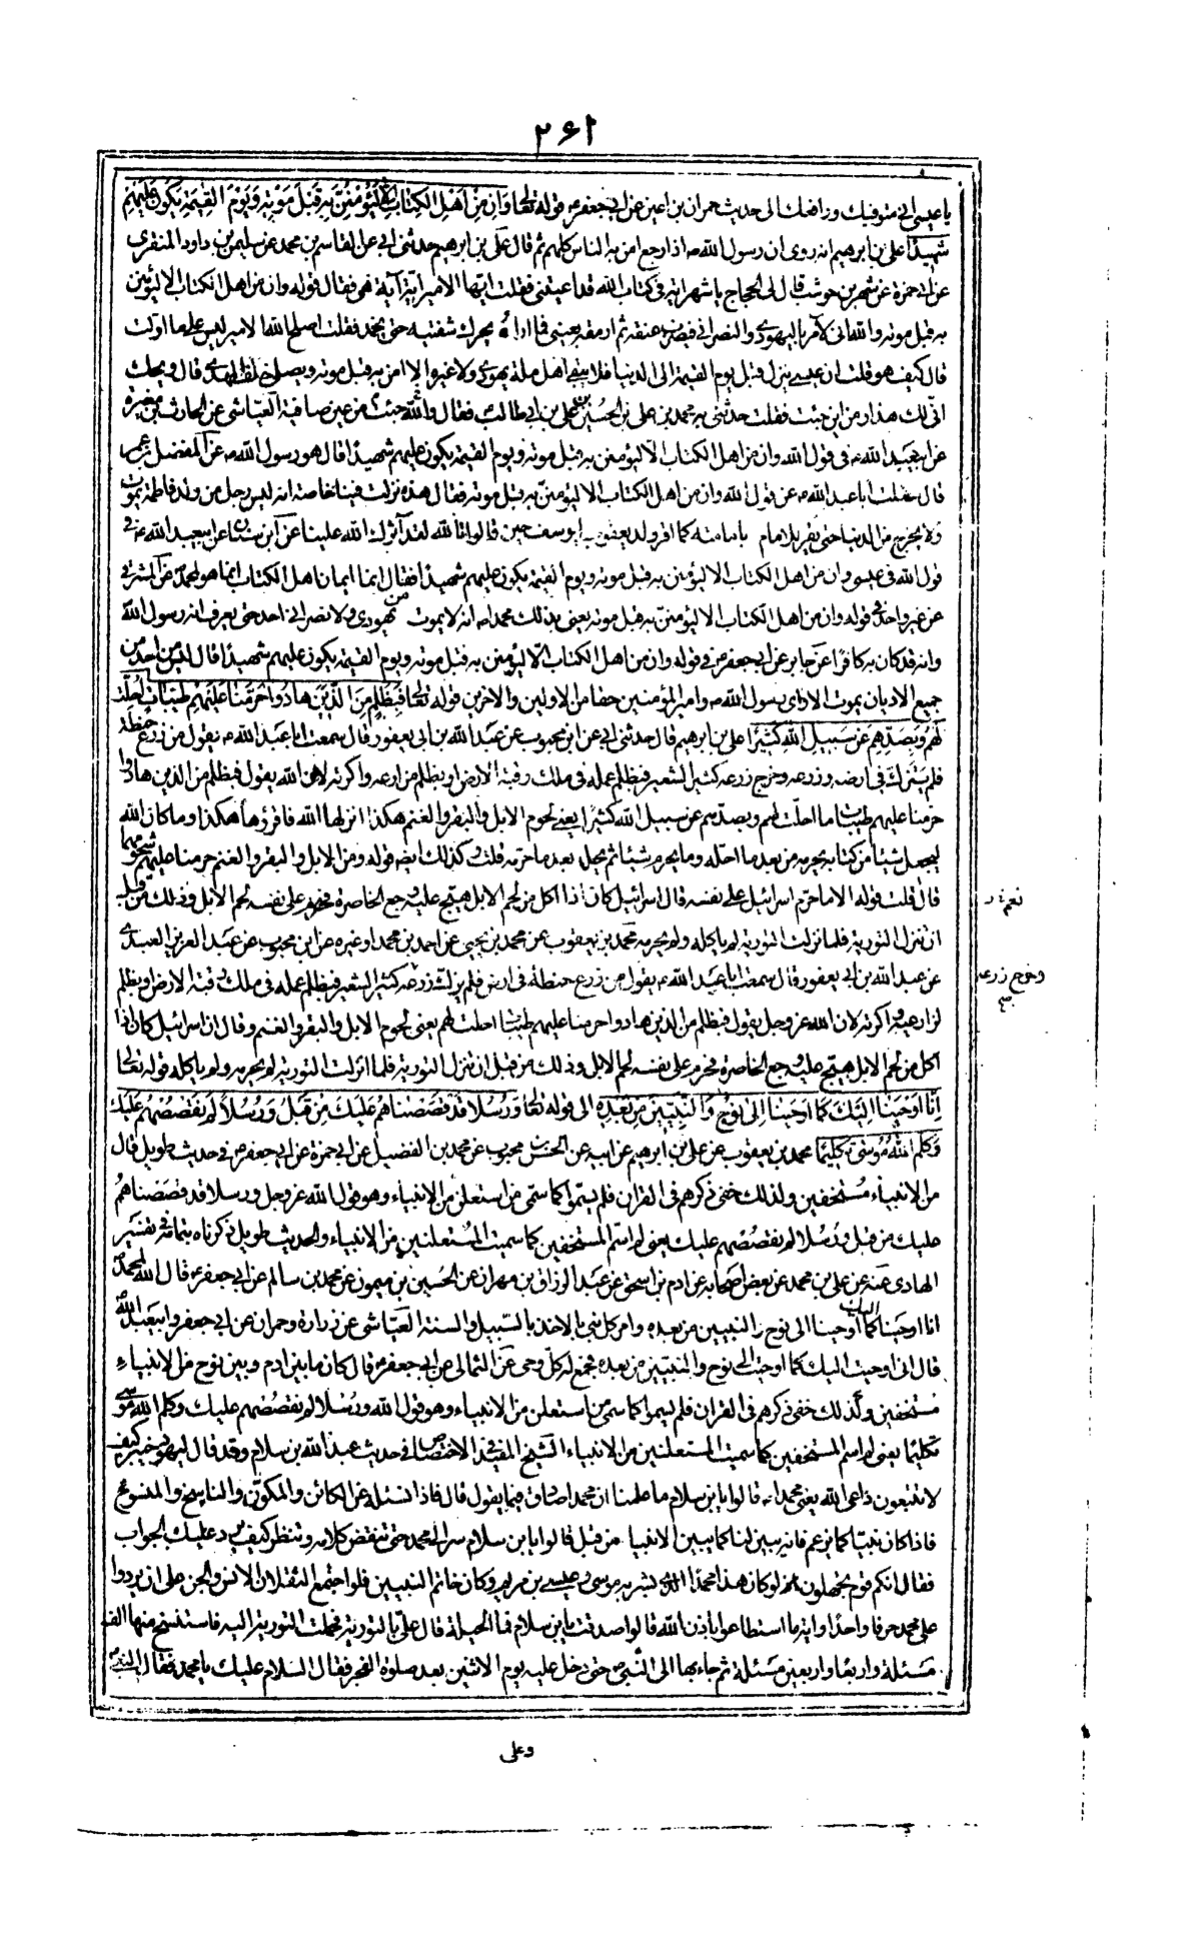 ٢۶١
يا عيسى انى متوفيك ورافعك الى حديث حمران بن اعين عن ابى جعفر ع قوله تعالى وَاِن مِن اَهْلِ الكِتابِ اِلّا لَيُؤمِنَنَّ بِهِ قَبلَ مَوْتِهِ وَيَوْمَ القِيٰمَةِ يَكونُ عَلَيْهِمْ
شَهِيدًا على بن ابراهيم انه روى ان رسول الله ص اذا رجع امن به الناس كلهم ثم قال على بن ابراهيم حدثنى ابى عن القاسم بن محمد عن سليمن بن داود المنقرى
عن ابى حمزة عن شهر بن حوشب قال لى الحجاج يا شهر اية فى كتاب الله قد اعيتنى فقلت ايها الامير اية آية هى فقال قوله وان من اهل الكتاب الا ليؤمنن
به قبل موته والله انى لآمر باليهودى والنصرانى فيضرب عنقه ثم ارمقه بعينى فما اراه يحرك شفتيه حتى يخمد فقلت اصلح الله الامير ليس على ما اوّلت
قال كيف هو قلت ان عيسى ينزل قبل يوم القيمة الى الدنيا فلا يبقى اهل ملة يهودى ولا غيره الا امن به قبل موته ويصلى خلف المهدى قال ويحك
انّى لك هذا ومن اين جئت فقلت حدثنى به محمد بن على بن الحسين بن على بن ابى طالب فقال والله جئت من عين صافية العيّاشى عن الحارث بن مغيرة
عن ابيعبد الله ع فى قول الله وان من اهل الكتاب الا ليؤمنن به قبل موته ويوم القيمة يكون عليهم شهيدا قال هو رسول الله ص عن المفضل بن عمر
قال سئلت ابا عبد الله ع عن قول الله وان من اهل الكتاب الا ليؤمننّ به قبل موته فقال هذه نزلت فينا خاصة انه ليس رجل من ولد فاطمة يموت
ولا يخرج من الدنيا حتى يقر للامام بامامته كما اقر ولد يعقوب ليوسف حين قالوا تالله لقد آثرك الله علينا عن ابن سنان عن ابيعبد الله ع فى
قول الله فى عيسى وان من اهل الكتاب الا ليؤمنن به قبل موته ويوم القيمة يكون عليهم شهيدا فقال انما ايمان اهل الكتاب انما هو لمحمد ص عن المشرقى
عن غير واحد فى قوله وان من اهل الكتاب الا ليؤمننّ به قبل موته يعنى بذلك محمدا ص انه لا يموت يهودى ولا نصرانى احد حتى يعرف انه رسول الله
وانه قد كان به كافرًا عن جابر عن ابى جعفر ع فى قوله وان من اهل الكتاب الا ليؤمنن به قبل موته ويوم القيمة يكون عليهم شهيدًا قال ليس من احد من
جميع الاديان يموت الا راى رسول الله ص وامير المؤمنين حقا من الاولين والاخرين قوله تعالى فَبِظُلمٍ مِنَ الَّذينَ هادُوا حَرَّمنا عَلَيْهِمْ طَيِّباتٍ اُحِلَّت
لَهُمْ وَبِصَدِّهِمْ عَن سَبيلِ اللهِ كَثيرًا على بن ابراهيم قال حدثنى ابى عن ابن محبوب عن عبد الله بن ابى يعفور قال سمعت ابا عبد الله ع يقول من زرع حنطة
فلم يترك فى ارضه وزرعه وخرج زرعه كثير الشعير فبظلم عمله فى ملك رقبة الارض او بظلم مزارعه واكرته لان الله يقول فبظلم من الذين هادوا
حرّمنا عليهم طيبات ما احلّت لهم وبصدّهم عن سبيل الله كثيرًا يعنى لحوم الابل والبقر والغنم هكذا انزلها الله فاقرؤها هكذا وما كان الله
ليجعل شيئا من كتابه يحرمه من بعد ما احله وما يحرم شيئا ثم يحل بعد ما حرمه قلت وكذلك ايضا قوله ومن الابل والبقر والغنم حرمنا عليهم شحومهما
قال قلت قوله الا ما حرم اسرائيل على نفسه قال اسرائيل كان اذا اكل من لحم الابل هيّج عليه وجع الخاصرة فحرم على نفسه لحم الابل وذلك من قبل
ان تنزل التورية فلما نزلت التورية لم ياكله ولم يحرمه محمد بن يعقوب عن محمد بن يحيى عن احمد بن محمد او غيره عن ابن محبوب عن عبد العزيز العبدى
عن عبد الله بن ابى يعفور قال سمعت ابا عبد الله ع يقول من زرع حنطة فى ارض فلم يزك زرعه كثير الشعير فبظلم عمله فى ملك رقبة الارض وبظلم
لزارعيه واكرته لان الله عز وجل يقول فبظلم من الذين هادوا حرمنا عليهم طيبات احلت لهم يعنى لحوم الابل والبقر والغنم وقال ان اسرائيل كان اذا
اكل من لحم الابل هيّج عليه وجع الخاصرة فحرم على نفسه لحم الابل وذلك من قبل ان تنزل التورية فلما انزلت التورية لم يحرمه ولم ياكله قوله تعالى
اِنّا اَوْحَيْنا اِلَيْكَ كَما اَوْحَيْنا اِلى نُوحٍ وَالنَّبِيّينَ مِن بَعْدِهِ الى قوله تعالى وَرُسُلًا قَد قَصَصْناهُمْ عَلَيْكَ مِن قَبلُ وَرُسُلًا لَم نَقْصُصْهُم عَلَيْكَ
وَكَلَّمَ اللهُ مُوسى تَكليمًا محمد بن يعقوب عن على بن ابراهيم عن ابيه عن الحسن بن محبوب عن محمد بن الفضيل عن ابى حمزة عن ابى جعفر ع فى حديث طويل قال
من الانبياء مُستخفين ولذلك خفى ذكرهم فى القران فلم يسموا كما سمى من استعلن من الانبياء وهو قول الله عز وجل ورسلا قد قصصناهم
عليك من قبل ورُسلا لم نقصُصهم عليك يعنى لم اسمّ المستخفين كما سميت المستعلنين من الانبياء والحديث طويل ذكرناه بتمامه فى تفسير
الهادى عنه عن على بن محمد عن بعض اصحابه عن ادم بن اسحق عن عبد الرزاق بن مهران عن الحسين بن ميمون عن محمد بن سالم عن ابى جعفر ع قال الله لمحمد ص
انا اوحينا اليك كما اوحينا الى نوح والنبيين من بعده وامر كل نبى بالاخذ بالسّبيل والسنة العيّاشى عن زرارة وحمران عن ابى جعفر وابيعبد الله
قال انى اوحيت اليك كما اوحيت الى نوح والنبيّين من بعده فجمع له كل وحى عن الثمالى عن ابى جعفر ع قال كان ما بين ادم وبين نوح من الانبياء
مُستخفين ولذلك خفى ذكرهم فى القران فلم يسموا كما سمى من استعلن من الانبياء وهو قول الله ورُسُلا لم نقصُصهم عليك وكلم الله موسى
تكليما يعنى لم اسم المستخفين كما سميت المستعلنين من الانبياء الشيخ المفيد فى الاختصاص فى حديث عبد الله بن سلام وقد قال ليهود خيبر كيف
لا تتبعون داعى الله يعنى محمدا ص قالوا يا بن سلام ما علمنا ان محمدا صادق فيما يقول قال فاذا نسئله عن الكائن والمكوّن والناسخ والمنسوخ
فاذا كان نبيّا كما يزعم فانه يبين لنا كما يبين الانبياء من قبل قالوا يا بن سلام سر الى محمد حتى تنقض كلامه وتنظر كيف يرد عليك الجواب
فقال انكم قوم تجهلون لو كان هذا محمدًا الذى بشر به موسى وعيسى بن مريم وكان خاتم النبيين فلو اجتمع الثقلان الانس والجن على ان يردوا
على محمد حرفا واحدًا او اية ما استطاعوا باذن الله قالوا صدقت يا بن سلام فما الحيلة قال علىّ بالتورية فحملت التورية اليه فاستنسخ منها الف
مسئلة واربعا واربعين مسئلة ثم جاء بها الى النّبى ص حتى دخل عليه يوم الاثنين بعد صلوة الفجر فقال السلام عليك يا محمد فقال النبى
وعلى
نعم
وخرج زرعه